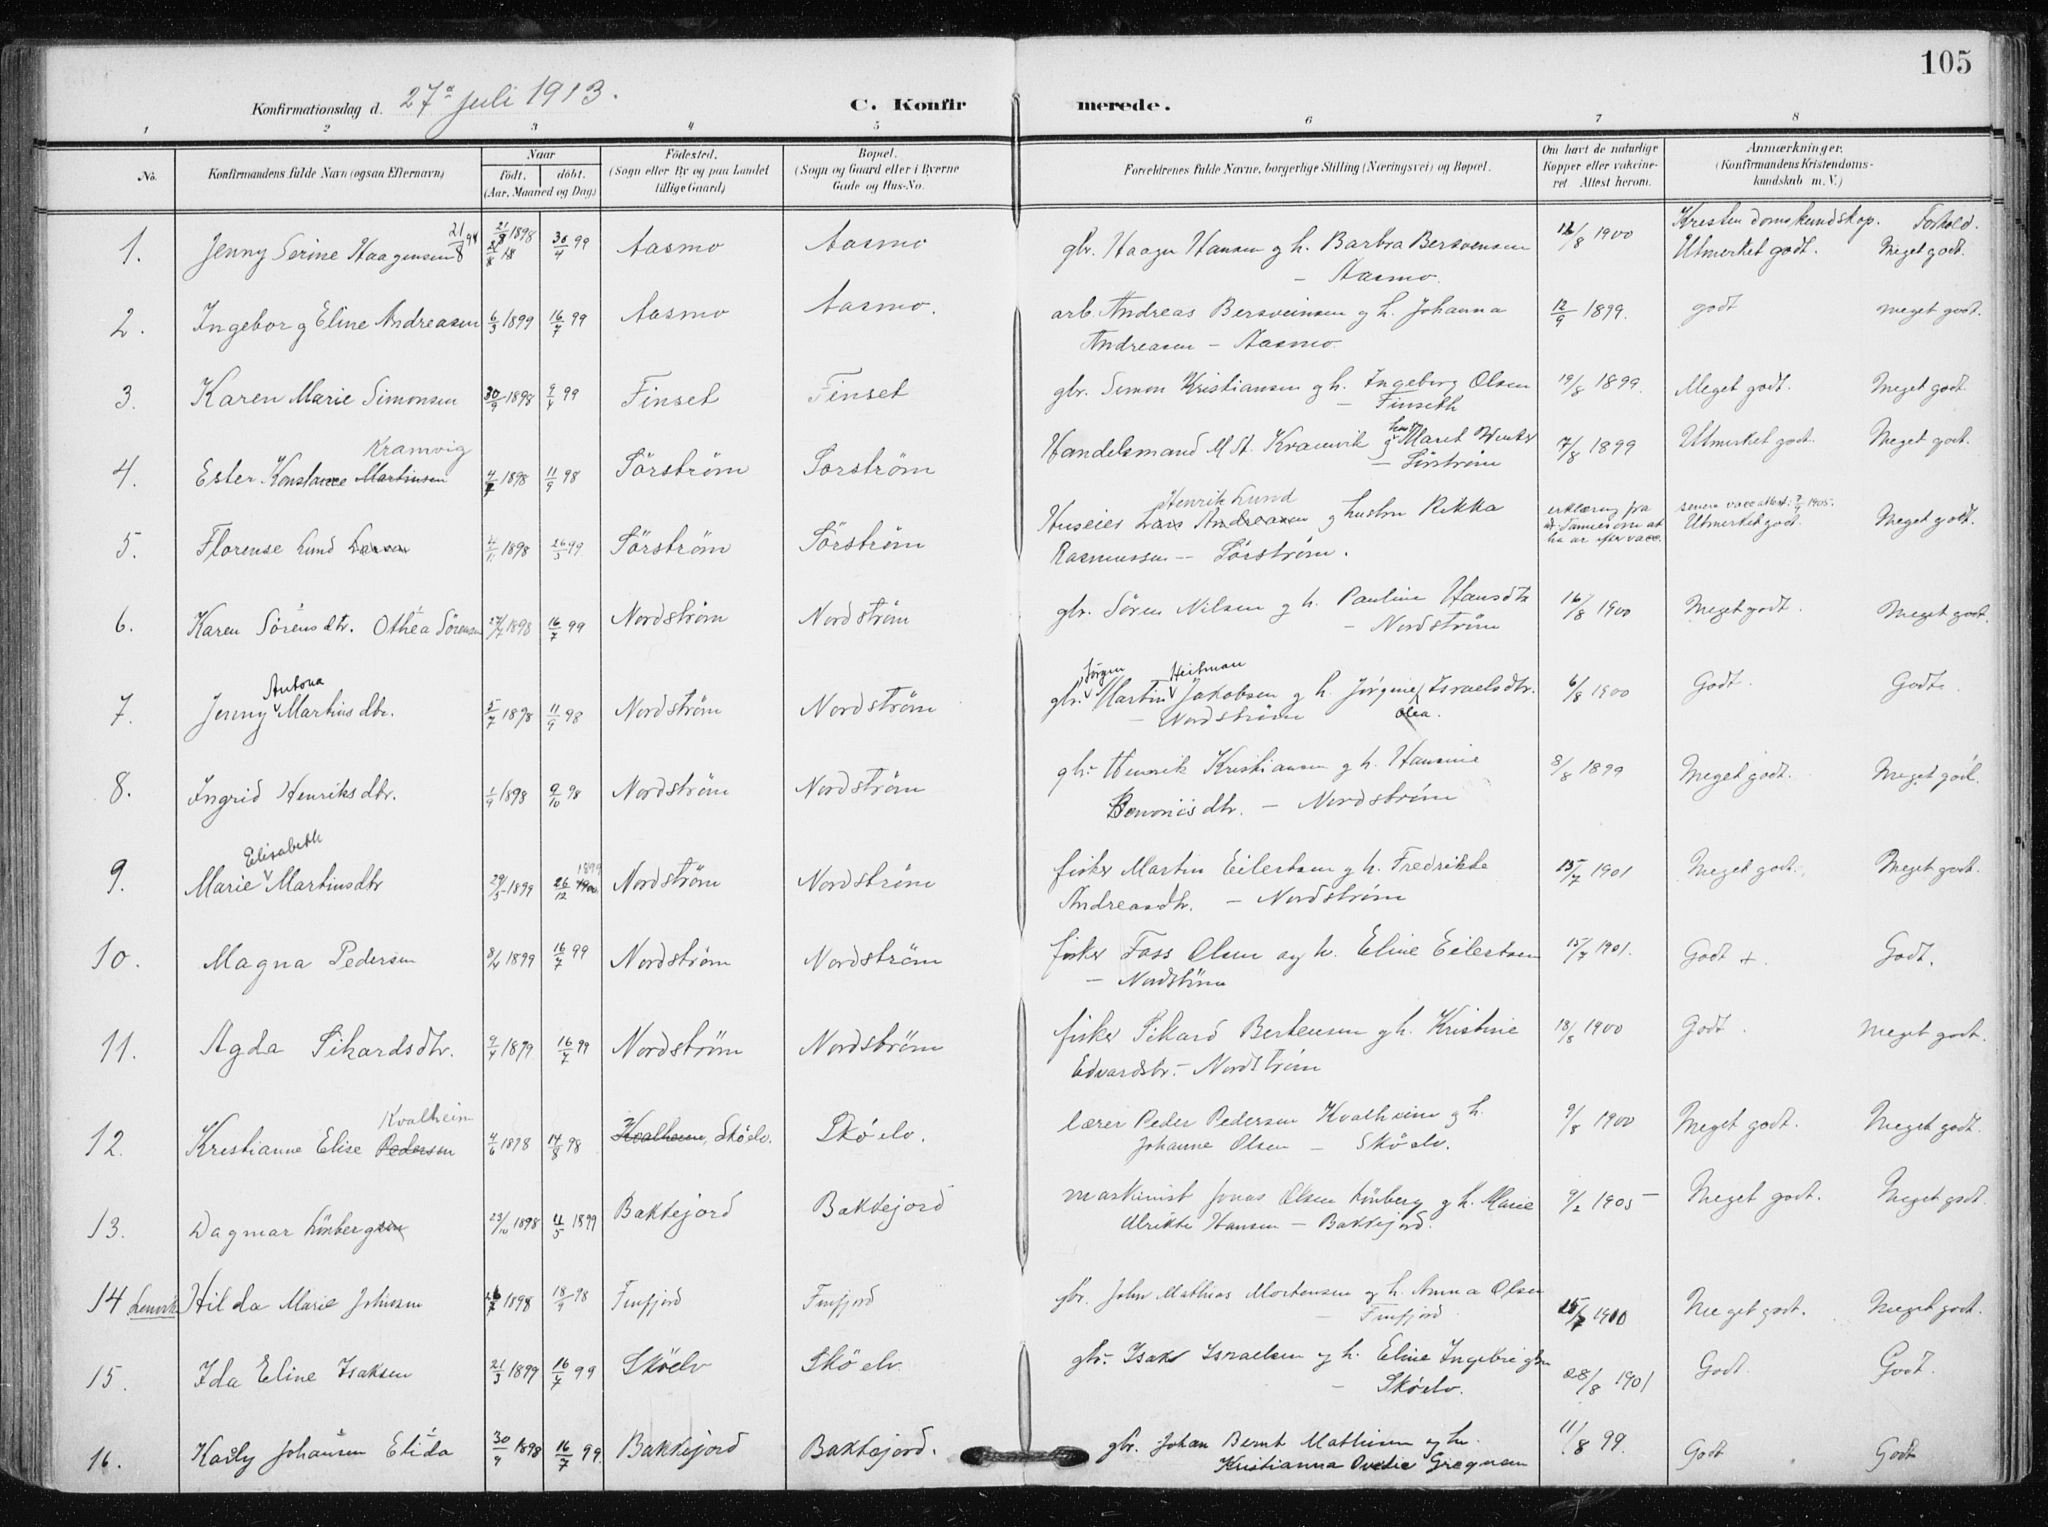 105
Konfirmationsdag d. 27de juli 1913.
C. Konfirmerede.
1 2 3 4 5 6 7 8
No. Konfirmandens fulde Navn (ogsaa Efternavn)
Naar
født. døbt.
(Aar, Maaned og Dag)
Fødested.
(Sogn eller By og paa Landet
tillige Gaard)
Bopæl.
(Sogn og Gaard eller i Byerne
Gade og Hus-No.
Forældrenes fulde Navne, borgerlige Stilling (Næringsvei) og Bopæl.
Om havt de naturlige
Kopper eller vakcine-
ret. Attest herom.
Anmærkninger.
(Konfirmandens Kristendoms-
kundskab m. V.)
Kristendomskundskap. Forhold.
1. Jenny Serine Haagensen 21/8 98 21/8 1898 30/4 99 Aasmo Aasmo gbr. Haagen Hansen g h. Barbra Bersvensen 12/8 1900 Utmerket godt. Meget godt.
– Aasmo.
2. Ingeborg Eline Andreasen 6/3 1899 16/7 99 Aasmo Aasmo. arb. Andreas Bersveinsen g h. Johanna 12/9 1899. godt meget godt.
Andreasen – Aasmo.
3. Karen Marie Simonsen 30/9 1898 2/4 99 Finset Finset gbr. Simon Kristiansen g h. Ingeborg Olsen 19/8 1899. Meget godt. Meget godt.
– Finseth
Kramvig
4. Ester Konstance Martinsen 4/7 1898 11/9 98 Sörström Sorström Handelsmand M. A. Kramvik g hustr Maret Winter 7/8 1899 Utmerket godt. Meget godt.
– Sörström
Henrik Lund
5. Florense Lund Larsen 1898 26/3 99 Sörström Sörström Huseier Lars Andreasen g hustru Rikka erklæring fra senere vacc.attest: 1905. Meget godt.
Utmerket godt.
Rasmussen – Sörström.
6. Karen Sörensdtr. Othea Sörensen 1898 16/7 99 Nordström Nordström gbr. Sören Nilsen g h. Pauline Hansdtr 16/8 1900 Meget godt. Meget godt.
– Nordström
Antona Jörgen Heitman
7. Jenny Martinsdtr. 5/7 1898 11/9 98 Nordström Nordström gbr. Martin Jakobsen g h. Jörgine Israelsdtr. 6/8 1900 Godt. Godt.
– Nordström Olea.
8. Ingrid Henriksdtr. 1/9 1898 9/10 98 Nordström Nordström gbr. Henrik Kristiansen g h. Hansine 8/8 1899 Meget godt. Meget godt.
Benoniisdtr. – Nordström
Elisabeth 1899
9. Marie Martinsdtr 29/3 1899 26/12 1900 Nordström Nordström fisker Martin Eilertsen g h. Fredrikke 15/7 1901 Meget godt. Meget godt.
Andreasdtr. – Nordström
10. Magna Pedersen 8/4 1899 16/7 99 Nordström Nordström fisker Foss Olsen og h. Eline Eilertsen 15/7 1901. Godt +. Godt.
– Nordström
11. Agda Sikardsdtr. 9/4 1899 16/7 99 Nordström Nordström fisker Sikard Bertensen g h. Kristine 18/8 1900 Godt. Meget godt.
Edvardsdtr. – Nordström
Kvalheim
12. Kristianne Elise Pedersen 4/6 1898 14/8 98 Kvalheim, Sköelv. Sköelv. lærer Peder Pedersen Kvalheim g h. 9/8 1900 Meget godt. Meget godt.
Johanne Olsen – Sköelv.
13. Dagmar Lönbergsen 23/10 1898 4/5 1899 Bakkejord Bakkejord maskinist Jonas Olsen Lönberg g h. Marie 9/2 1905 – Meget godt. Meget godt.
Ulrikke Hansen – Bakkejord.
14 Lenvik Hilda Marie Johnsen 26/7 1898 18/9 98 Finfjord Finfjord gbr. John Mathias Mortensen g h. Anna Olsen 15/7 1900 Meget godt. Meget godt.
– Finfjord
15. Ida Eline Isaksen 21/3 1899 16/7 99 Sköelv Sköelv. gbr. Isak Israelsen g h. Eline Ingebrigtsen 28/8 1901 Godt. Godt.
– Sköelv.
16. Karly Johansen Elida 30/9 1898 16/7 99 Bakkejord Bakkejord. gbr. Johan Bernt Mathisen og h. 11/8 99. Godt Godt
Kristianna Ovedie Gregusen